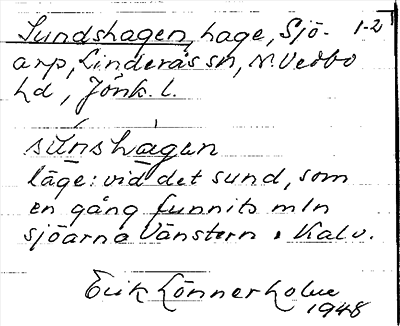 Sundshagen, hage, Sjö- 1-2
arp, Linderås sn, N. Vedbo
hd, Jönk. l.
sú̱nshà̱gan
läge: vid det sund, som
en gång funnits mln
sjöarna Vänstern o Kalv.
Erik Lönnerholm
1948